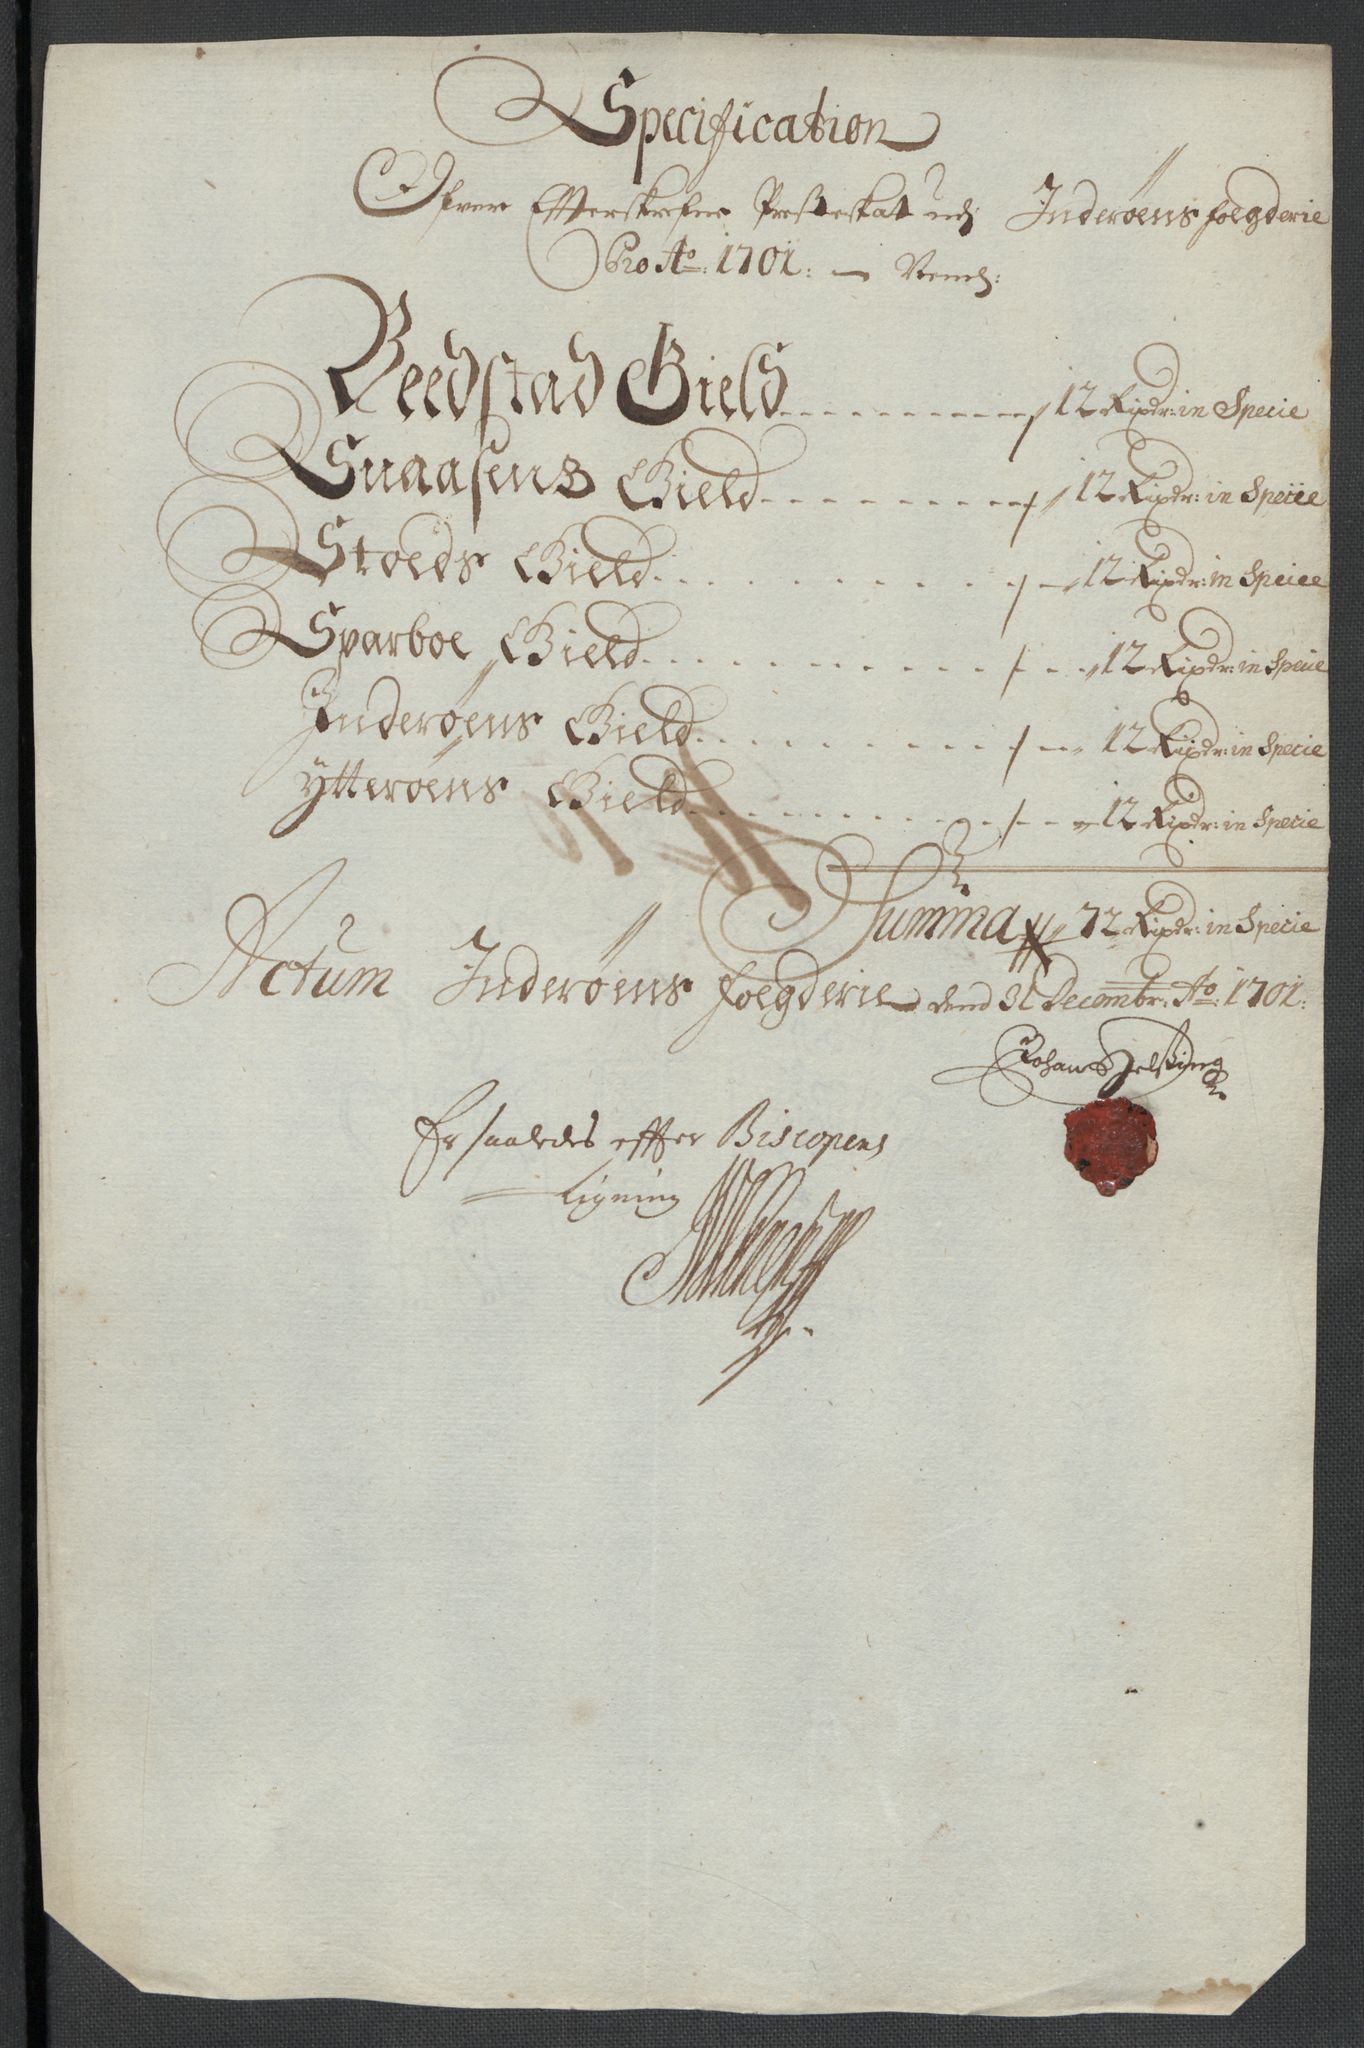 Specification
Ofver Effterskrefne Presteskat udj Inderøens foegderie
Pro Ao: 1701: — Nemb:
Beedstad Gield 12 Rixdr: in Specie
Snaasens Gield 12 Rixdr: in Specie
Stoeds Gield 12 Rixdr: in Specie
Sparboe Gield 12 Rixdr: in Specie
Inderøens Gield 12 Rixdr: in Specie
Ytterøens Gield 12 Rixdr: in Specie
Summa 72 Rixdr: in Specie
Actum Inderøens foegderie dend 31 Decembr: Ao: 1701:
Johan
Er saaledes effter Biscopens
Ligning